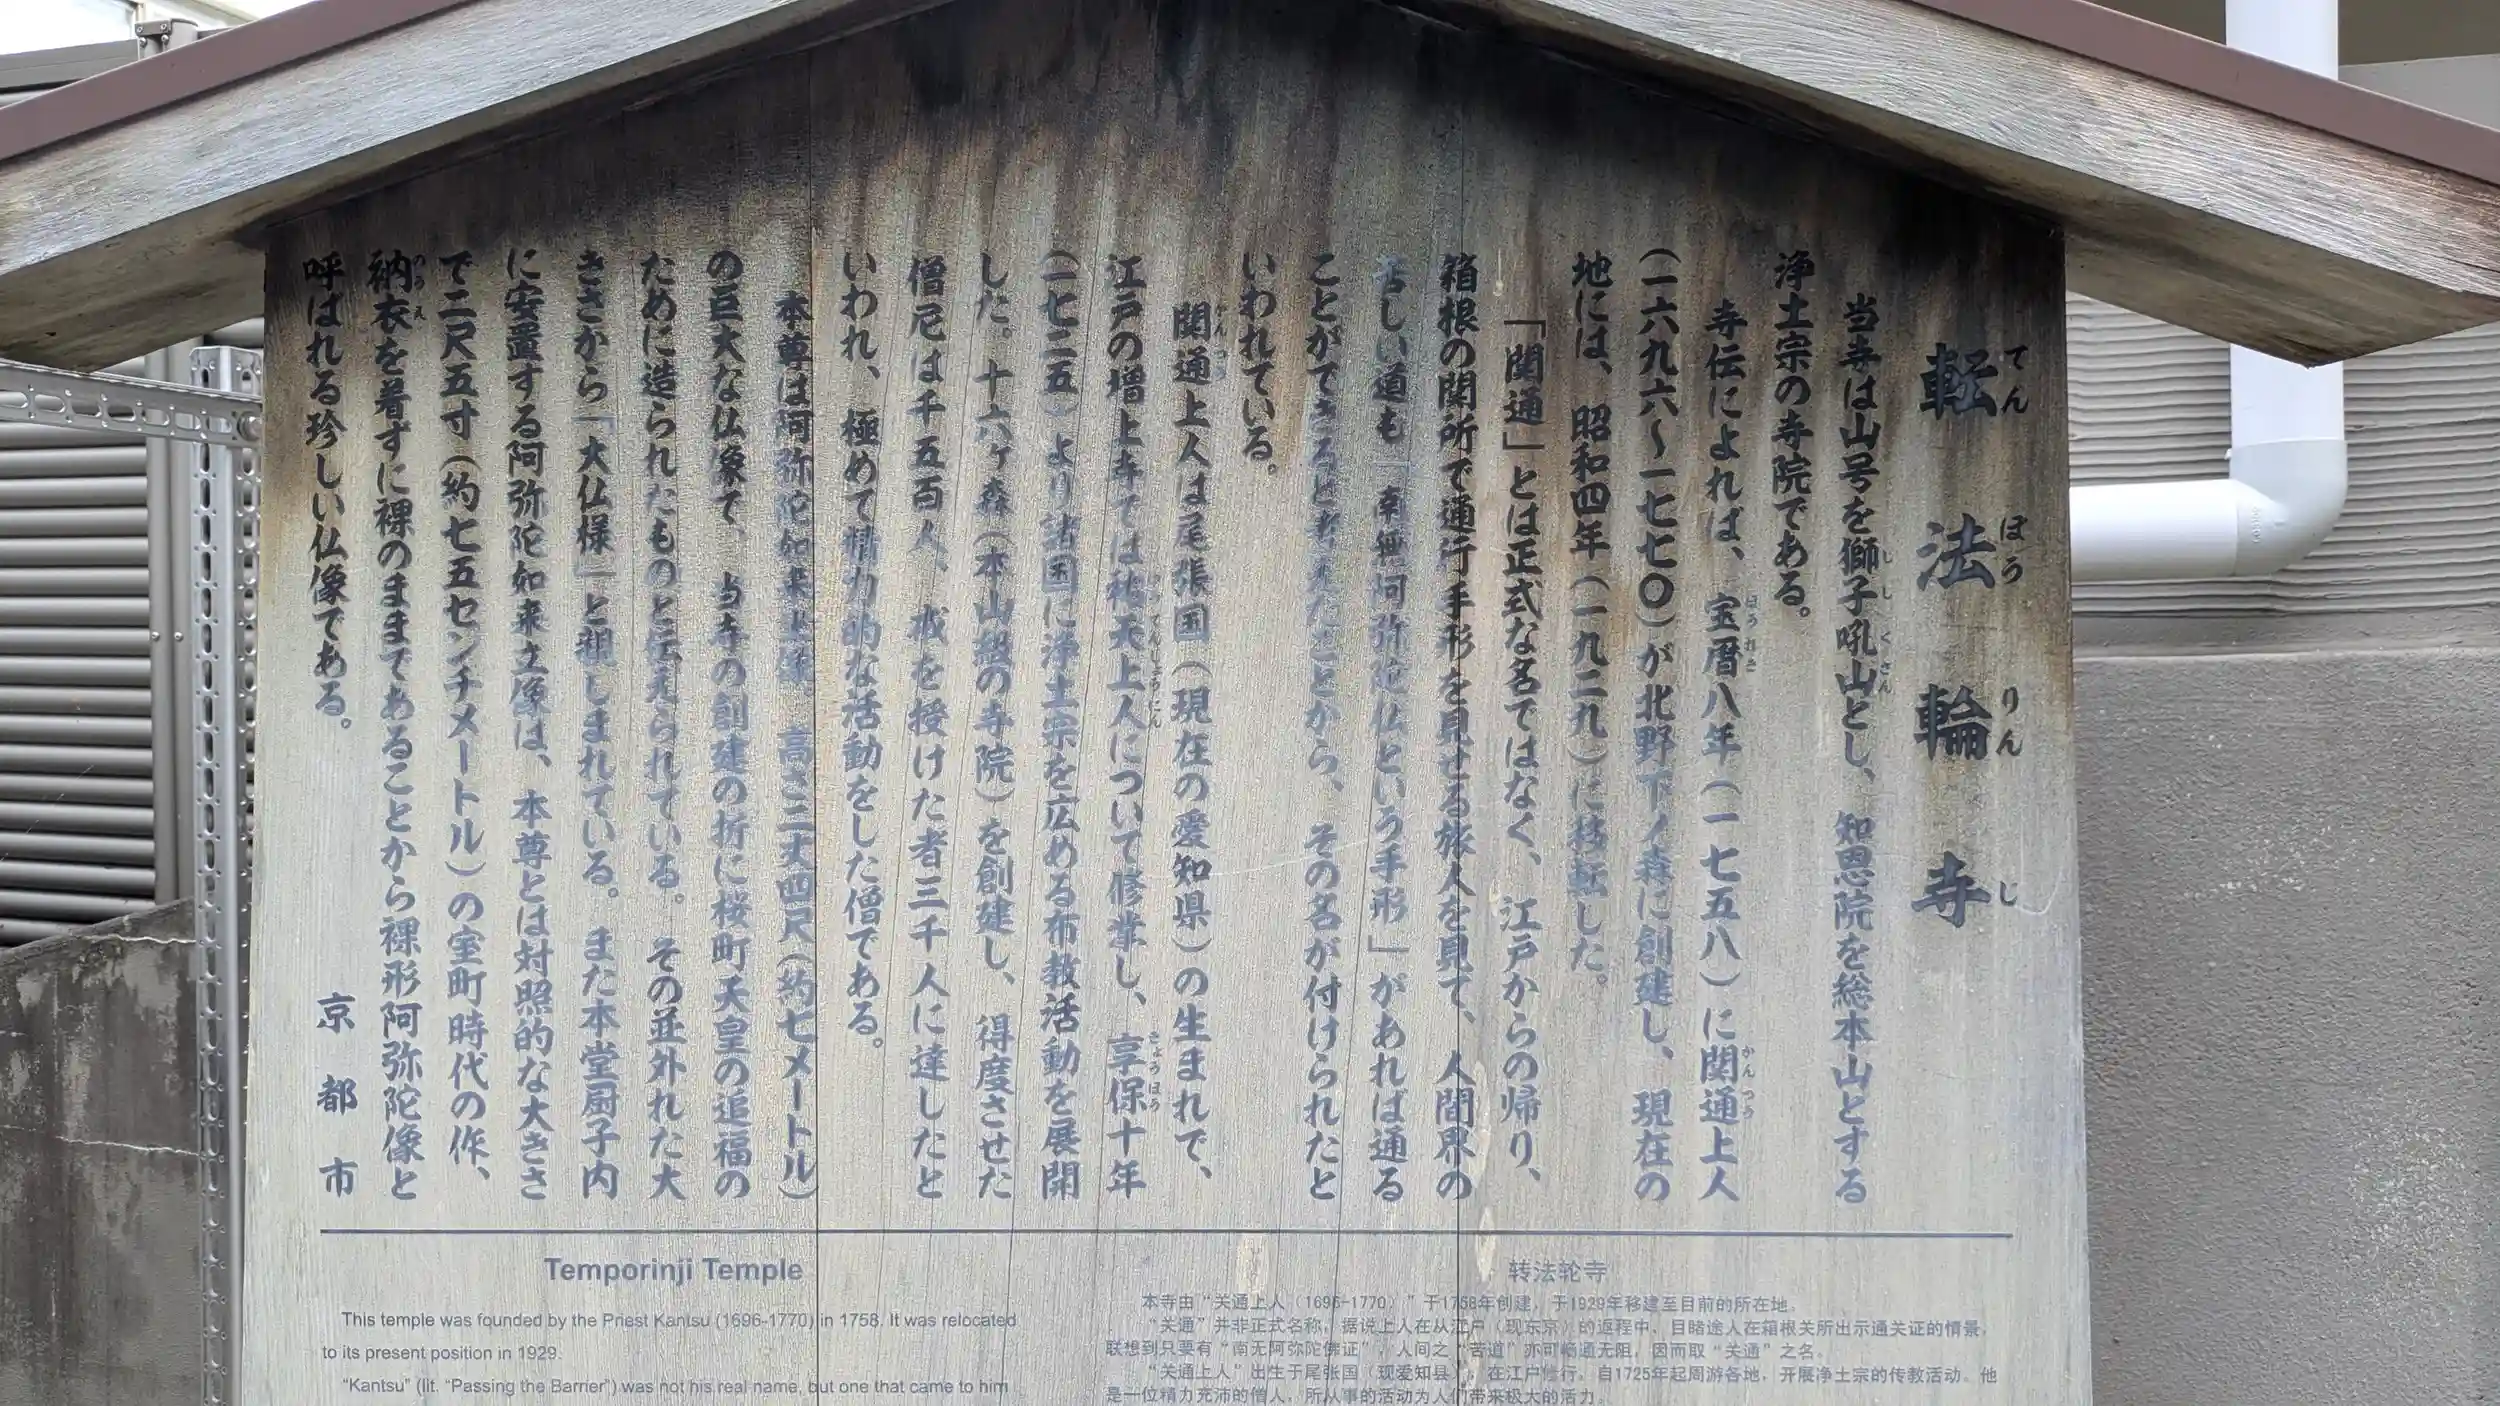 転法輪寺
てんぽうりんじ
当寺は山号を獅子吼山とし、知恩院を総本山とする
浄土宗の寺院である。
寺伝によれば、宝暦八年(一七五八)に関通上人
(一六九六〜一七七〇)が北野下ノ森に創建し、現在の
地には、昭和四年(一九二九)に移転した。
「関通」とは正式な名ではなく、江戸からの帰り、
箱根の関所で通行手形を見せる旅人を見て、人間界の
苦しい道も「南無阿弥陀仏という手形」があれば通る
ことができると考えたことから、その名が付けられたと
いわれている。
関通上人は尾張国(現在の愛知県)の生まれで、
江戸の増上寺では祐天上人について修業し、享保十年
(一七二五)より諸国に浄土宗を広める布教活動を展開
した。十六ヶ森(本山級の寺院)を創建し、得度させた
僧尼は千五百人、戒を授けた者三千人に達したと
いわれ、極めて精力的な活動をした僧である。
本尊は阿弥陀如来坐像。高さ二丈四尺(約七メートル)
の巨大な仏像で、当寺の創建の折に桜町天皇の追福の
ために造られたものと伝えられている。その並外れた大
きさから「大仏様」と親しまれている。また本堂厨子内
に安置する阿弥陀如来立像は、本尊とは対照的な大きさ
で二尺五寸(約七五センチメートル)の室町時代の作、
衲衣を着ずに裸のままであることから裸形阿弥陀像と
呼ばれる珍しい仏像である。
京都市
Temporinji Temple
This temple was founded by the Priest Kantsu (1696-1770) in 1758. It was relocated
to its present position in 1929.
"Kantsu" (lit. "Passing the Barrier") was not his real name, but one that came to him
转法轮寺
本寺由“关通上人（1696-1770）”于1758年创建，于1929年移建至目前的所在地。
“关通”并非正式名称，据说上人在从江户（现东京）的返程中，目睹途人在箱根关所出示通关证的情景，
联想到只要有“南无阿弥陀佛证”，人间之“苦道”亦可畅通无阻，因而取“关通”之名。
“关通上人”出生于尾张国（现爱知县），在江户修行，自1725年起周游各地，开展净土宗的传教活动。他
是一位精力充沛的僧人，所从事的活动为人们带来极大的活力。